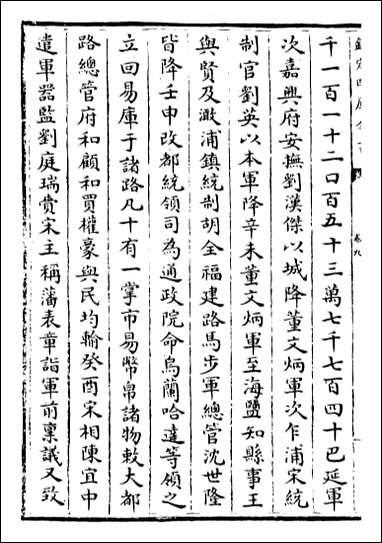 欽定四庫全書
卷九
千一百一十二口百五十三萬七千七百四十巴延軍
次嘉興府安撫劉漢傑以城降董文炳軍次乍浦宋統
制官劉英以本軍降辛未董文炳軍至海鹽知縣事王
與賢及澉浦鎮統制胡全福建路馬步軍總管沈世隆
皆降壬申改都統領司為通政院命烏蘭哈達等領之
立回易庫于諸路凡十有一掌市易幣帛諸物敕大都
路總管府和顧和買權豪與民均輸癸酉宋相陳宜中
遣軍器監劉庭瑞賫宋主稱藩表章詣軍前稟議又致